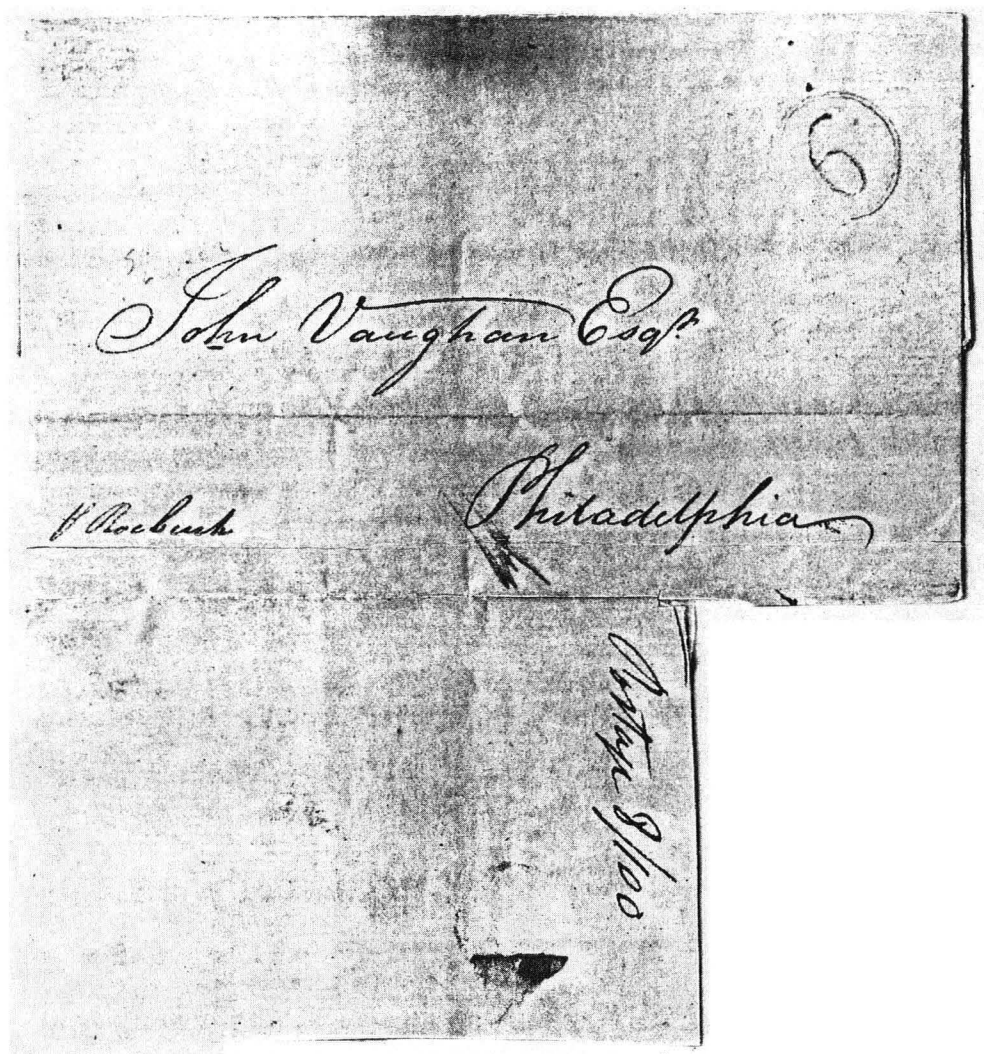 6
John Vaughan Esqr.
Philadelphia
⅌ Roebuck
8/100